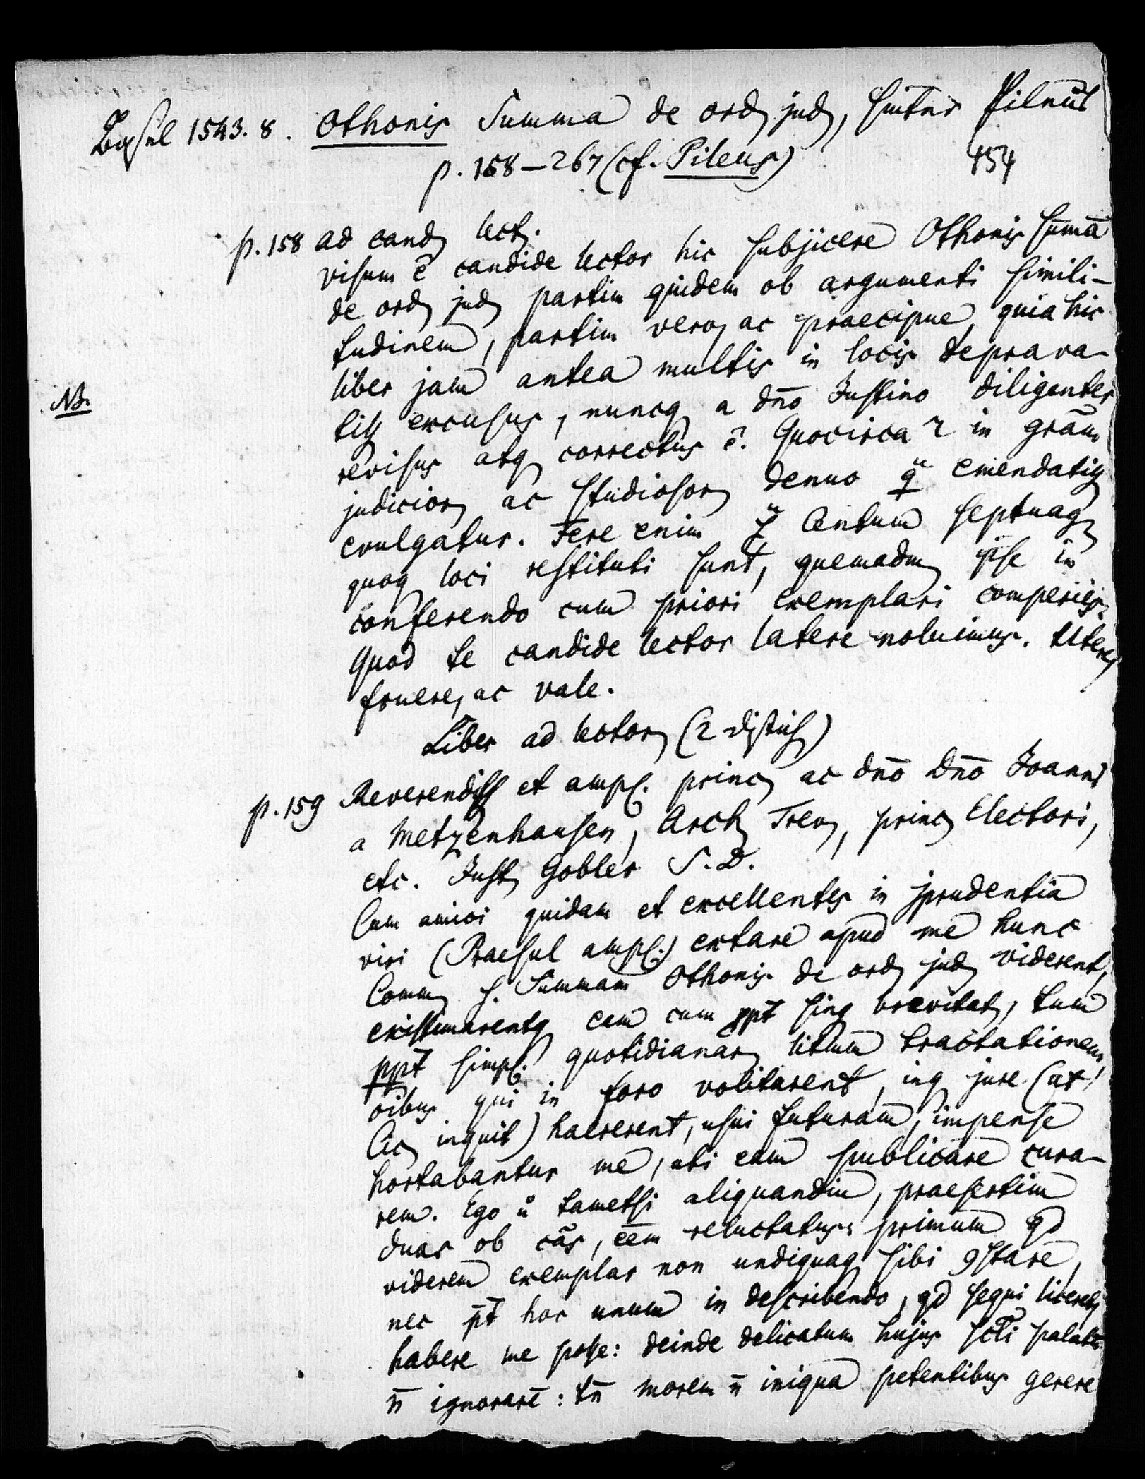 Basel 1543. 8. Othonis Summa de ord jud, hinter Pileus
p. 158–267 (cf. Pileus) 454
p. 158 ad cand lect.
visum ē candide lector hic subjicere Othonis sūmā
de ord jud partim quidem ob argumenti simili-
tudinem, partim vero ac praecipue, quia hic
liber jam antea multis in locis deprava-
tus excusus, nuncq a dño Justino diligenter
NB. revisus atq correctus ē. Quocirca in grām
judicior ac studiosor denuo emendatius
evulgatur. Fere enim centum septuag
quoq loci restituti sunt, quemadm ipse in
conferendo cum priori exemplari comperies.
Quod te candide lector latere noluimus. Utere,
fruere, ac vale.
Liber ad lector (2 Distich)
p. 159 Reverendiss et ampl. princ ac dño Dño Joanni
a Metzenhausen, Arch Trev, princ Electori,
etc. Just Gobler S. D.
Cum amici quidam et excellentes in jprudentia
viri (Praesul ampl.) extare apud me hunc
Comm s. Summam Othonis de ord jud viderent,
existimarentq eam cum ppt sing brevitat, tum
ppt simpl. quotidianar litium tractationem,
oibus qui in foro volitarent, inq jure (ut
Cic inquit) haererent, usui futuram, impense
hortabantur me, uti eam publicare cura-
rem. Ego tametsi aliquandiu, praesertim
duas ob cās, eēm reluctatus: primum qd
viderem exemplar non undiquaq sibi 9stare,
nec pt hoc unum in describendo, qd sequi liceret,
habere me posse: deinde delicatum hujus scti palatū
n̄ ignorarē: tn̄ morem n̄ iniqua petentibus gerere